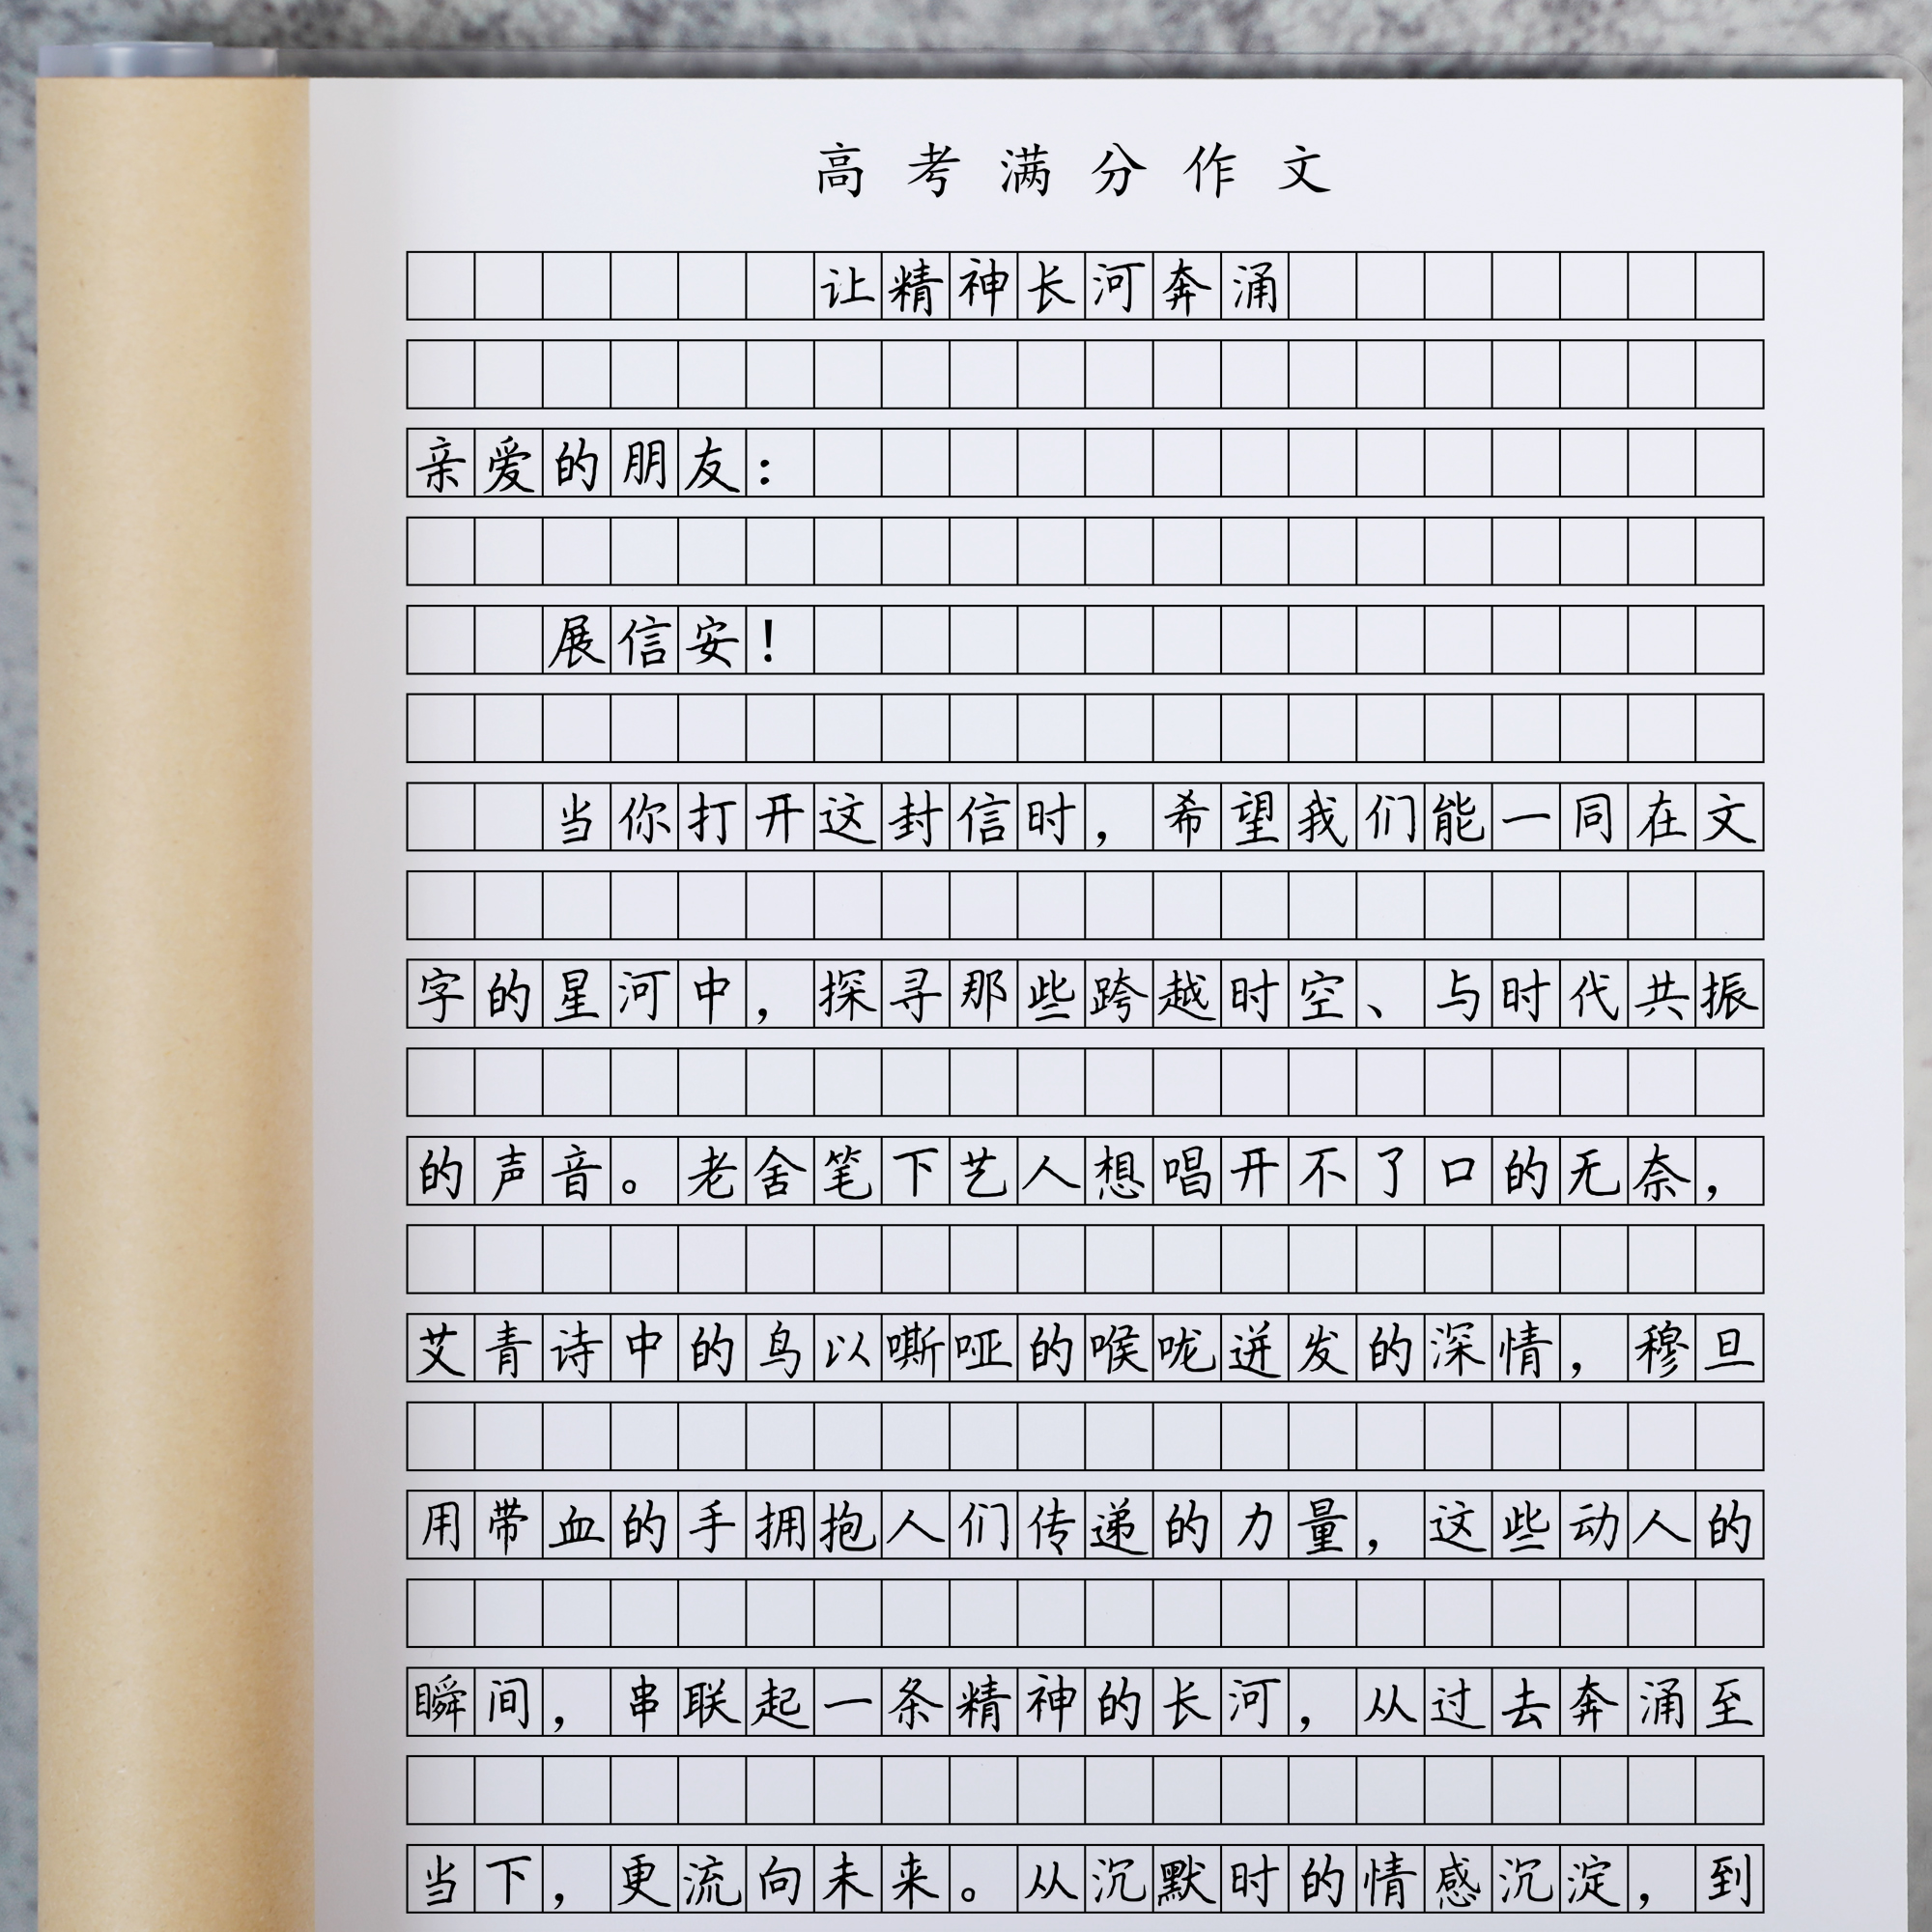 高考满分作文
让精神长河奔涌
亲爱的朋友：
展信安！
当你打开这封信时，希望我们能一同在文
字的星河中，探寻那些跨越时空、与时代共振
的声音。老舍笔下艺人想唱开不了口的无奈，
艾青诗中的鸟以嘶哑的喉咙迸发的深情，穆旦
用带血的手拥抱人们传递的力量，这些动人的
瞬间，串联起一条精神的长河，从过去奔涌至
当下，更流向未来。从沉默时的情感沉淀，到